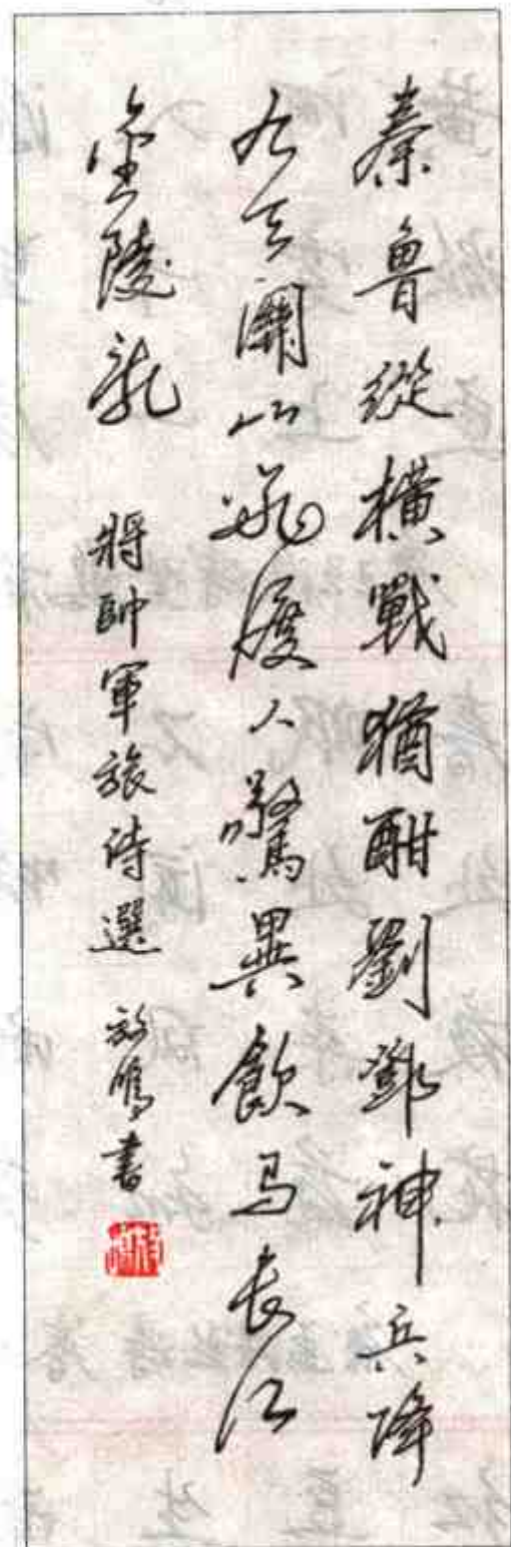 秦魯縱橫戰猶酣劉鄧神兵降
九天關山飛渡人驚異飲马長江
金陵亂 將帥軍旅诗選 书